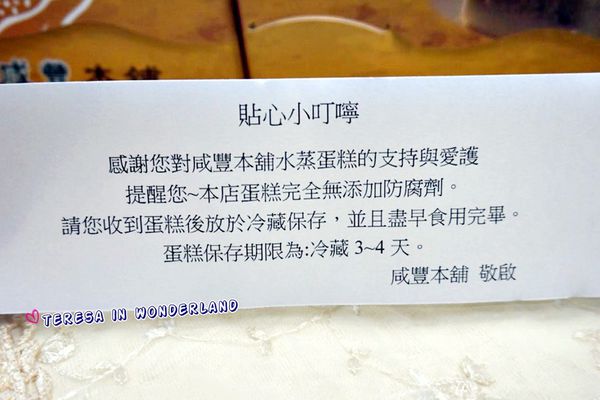 咸豐本舖
貼心小叮嚀
感謝您對咸豐本舖水蒸蛋糕的支持與愛護
提醒您~本店蛋糕完全無添加防腐劑。
請您收到蛋糕後放於冷藏保存，並且盡早食用完畢。
蛋糕保存期限為:冷藏 3~4 天。
咸豐本舖 敬啟
TERESA IN WONDERLAND